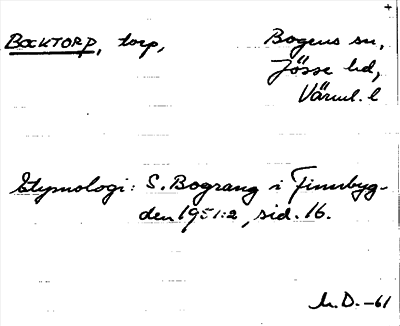 BOCKTORP, torp, Bogens sn,
Jösse hd,
Värml. l
Etymologi: S. Bograng i Finnbyg-
den 1951:2, sid. 16.
M.D. -61